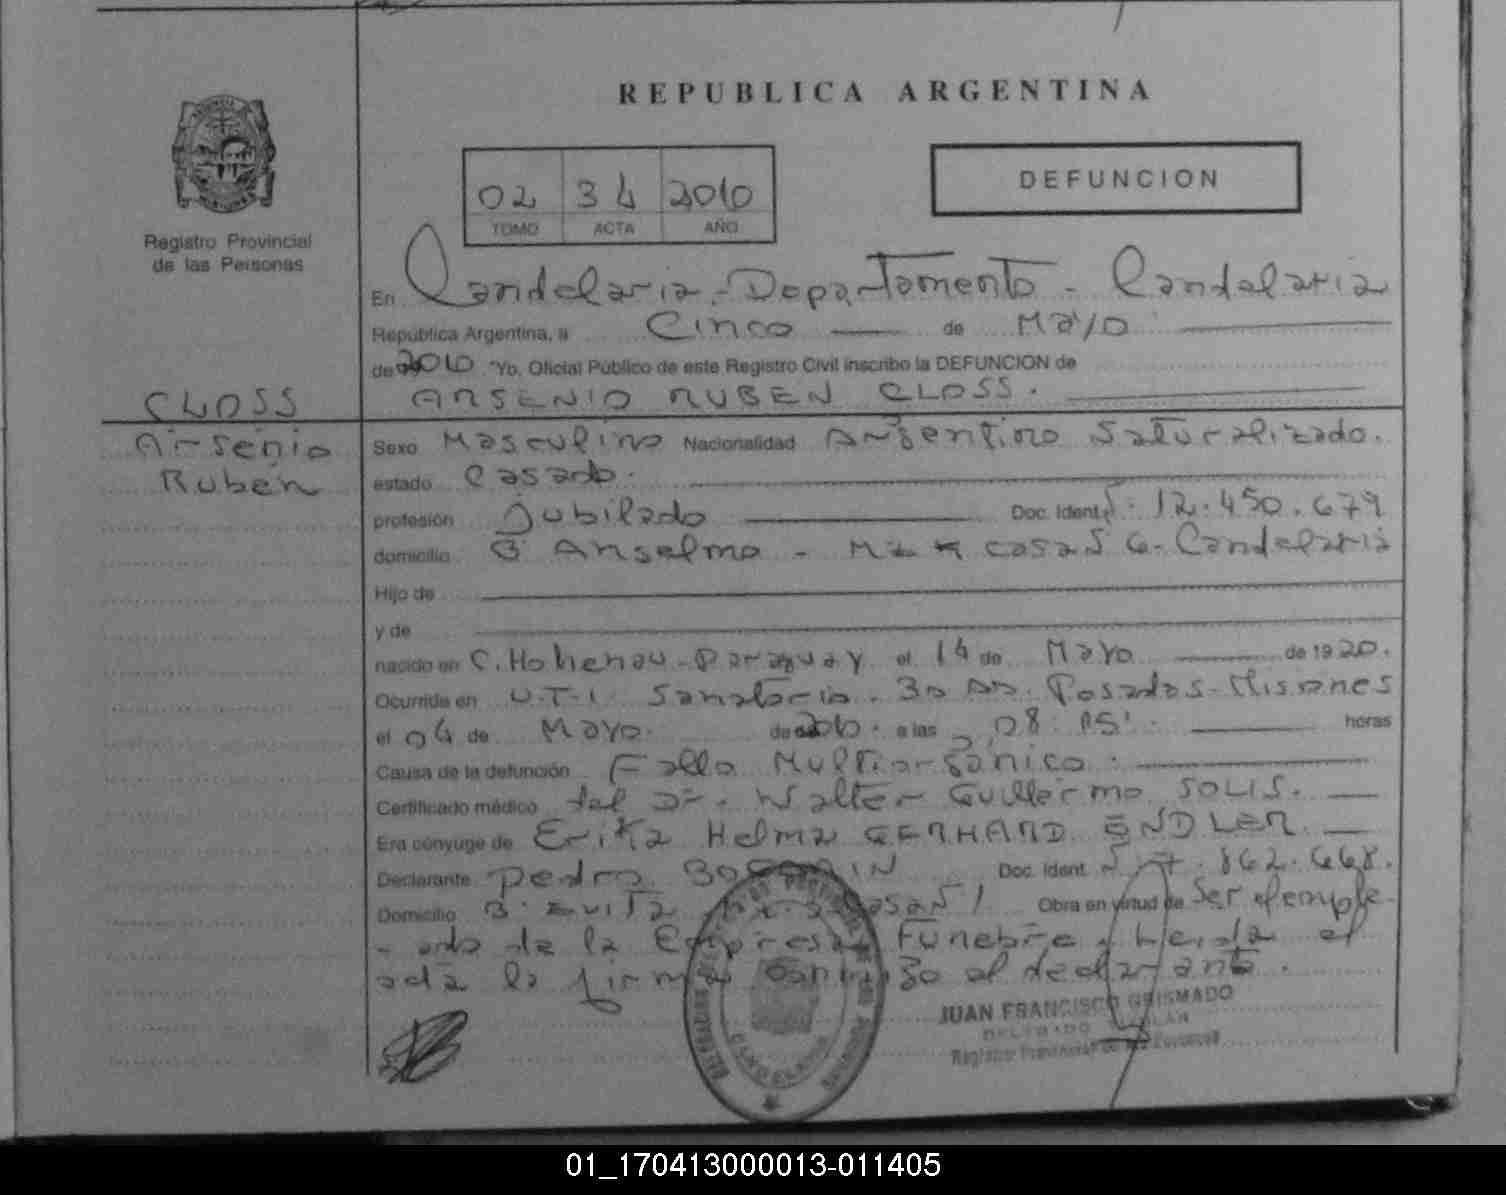 REPUBLICA ARGENTINA
DEFUNCION
02 34 2010
TOMO ACTA AÑO
Registro Provincial
de las Personas
En Candelaria - Departamento - Candelaria
República Argentina, a Cinco de Mayo
de 2010 "Yo, Oficial Público de este Registro Civil inscribo la DEFUNCION de
ARSENIO RUBEN CLOSS.
CLOSS
Arsenio
Rubén
Sexo Masculino Nacionalidad Argentino Naturalizado.
estado Casado.
profesión Jubilado Doc. Ident. 12.450.679
domicilio Bº Anselmo - Mz casa 6 - Candelaria
Hijo de
y de
nacido en C. Hohenau - Paraguay el 14 de Mayo de 1920.
Ocurrida en U.T.I. Sanatorio Posadas - Misiones
el 04 de Mayo de 2010. a las 08:15'. horas
Causa de la defunción Falla Multiorgánica.
Certificado médico del Dr. Walter Guillermo SOLIS.
Era cónyuge de Erika Helma GERHARD ENDLER
Declarante Pedro Doc. Ident. 862.668.
Domicilio Bº Evita Obra en virtud de Ser emple-
- ado de la Empresa Fúnebre, Leída el
acta la firma conmigo el declarante.
JUAN FRANCISCO GRISMADO
DELEGADO TITULAR
Registro Provincial de las Personas
CANDELARIA
01_170413000013-011405